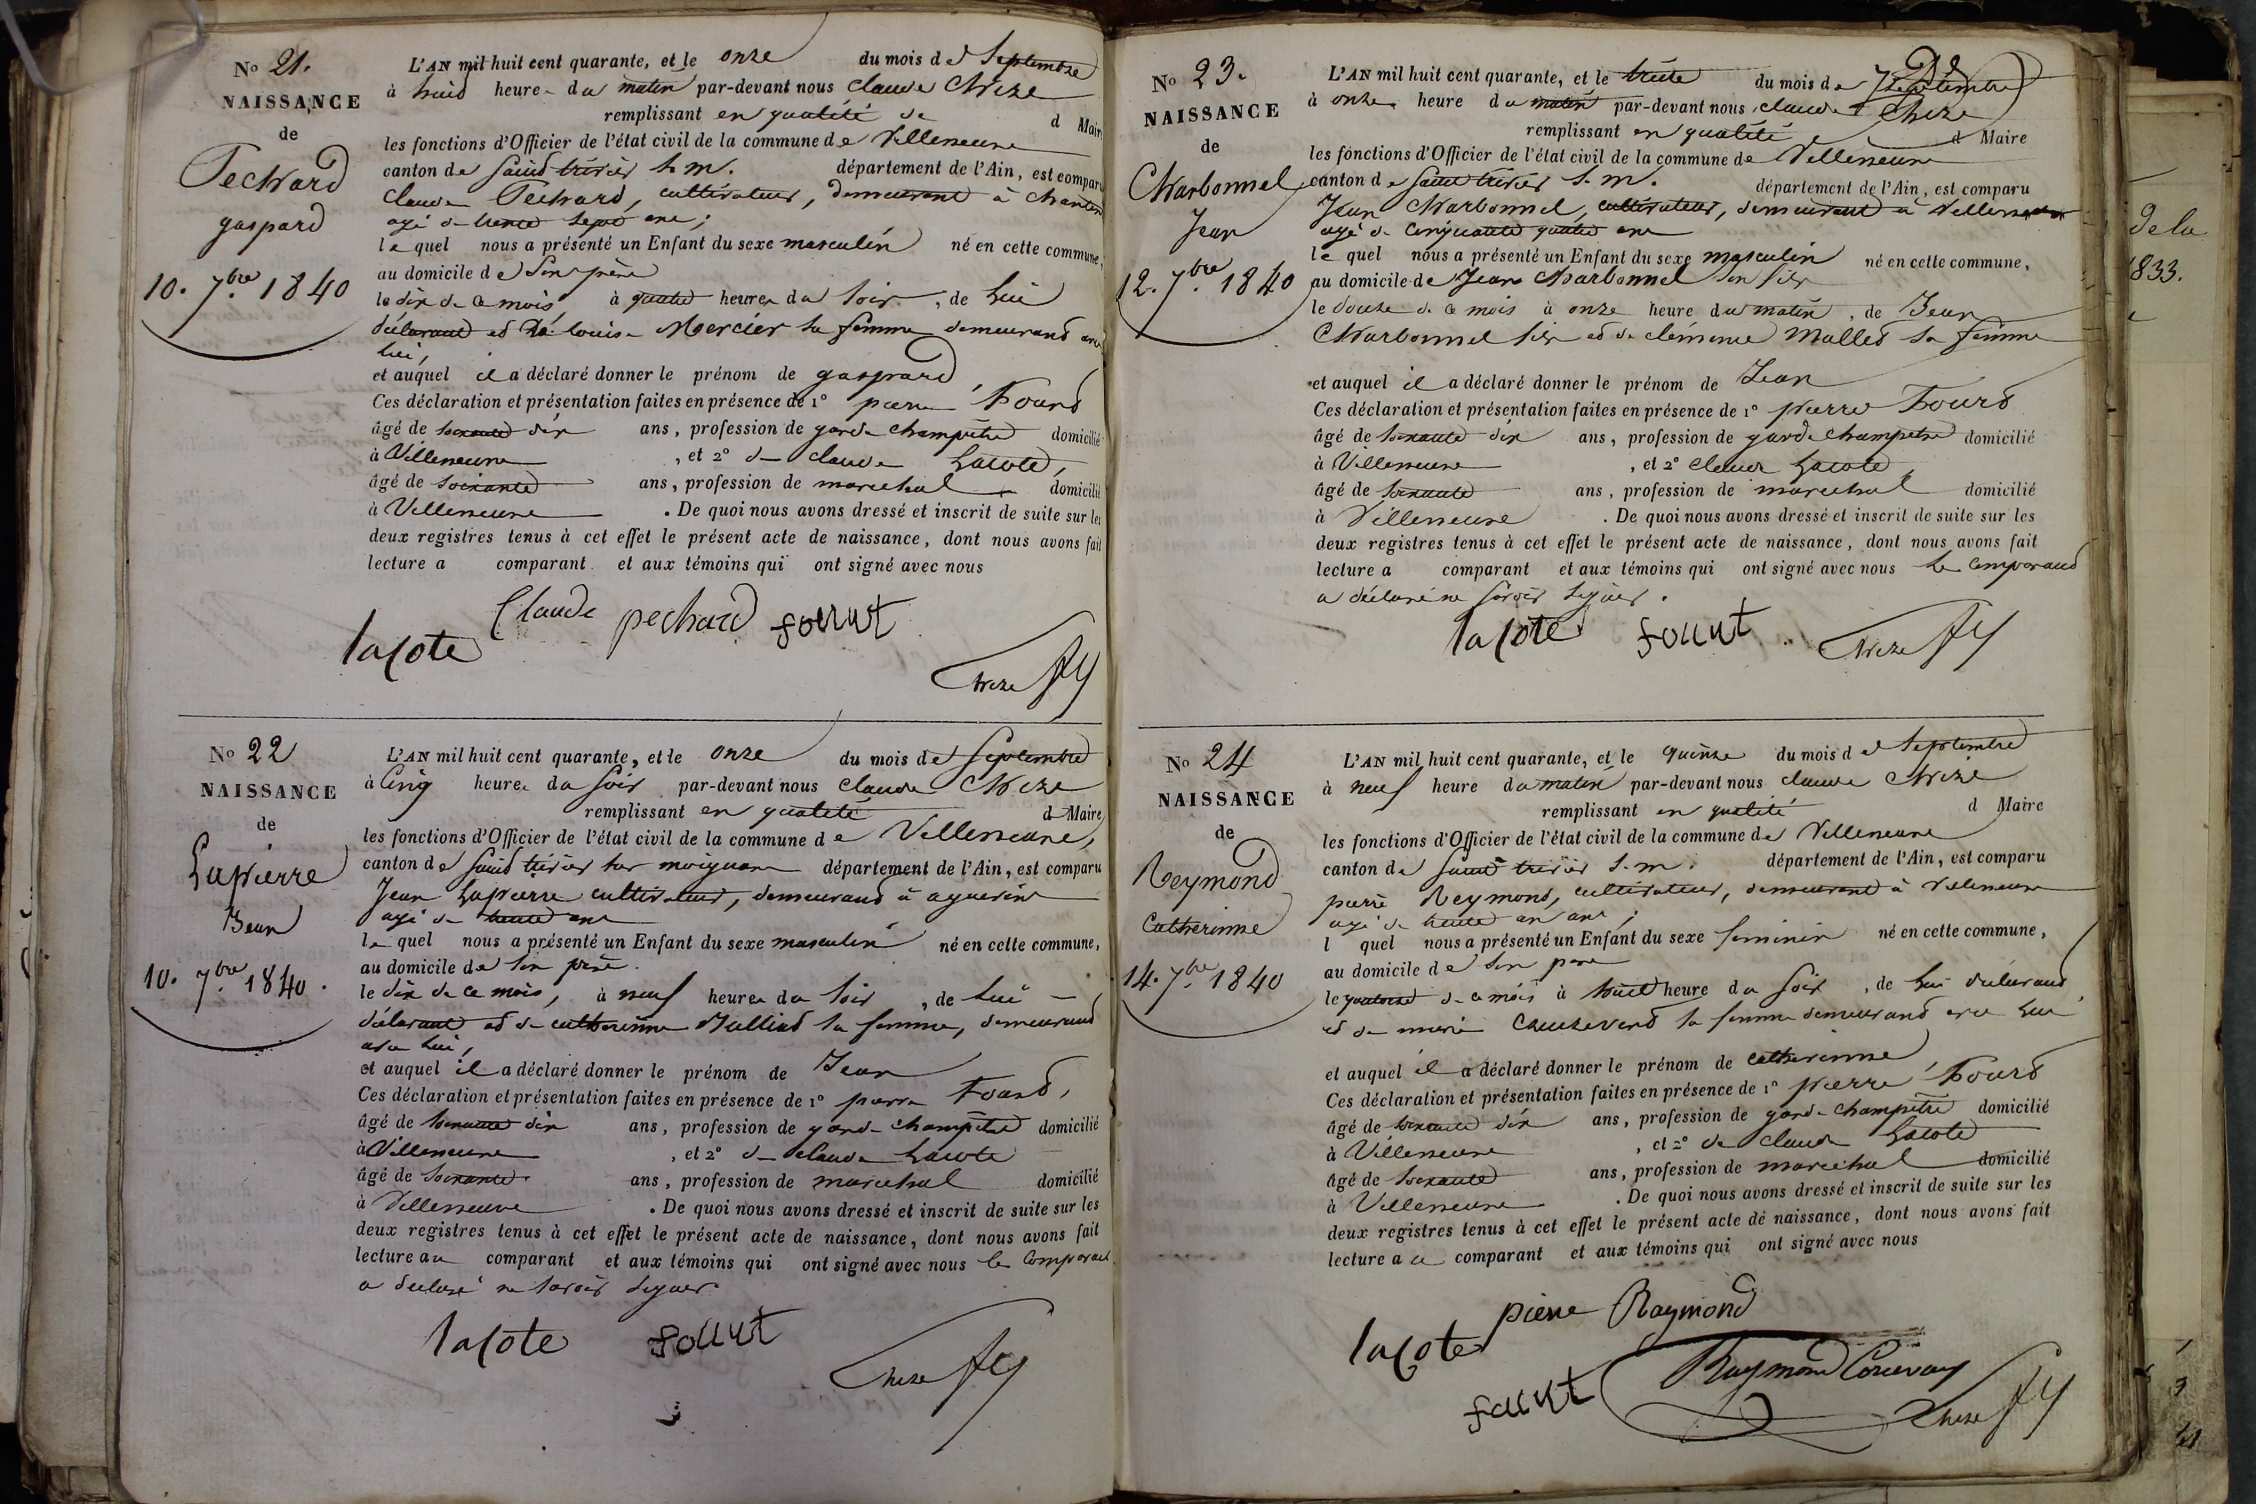 No 21.
NAISSANCE
de
Pechard
gaspard
10. 7bre 1840
L'AN mil huit cent quarante, et le onze du mois de Septembre
à huit heures du matin par-devant nous claude Chize
remplissant en qualité de d Maire
les fonctions d'Officier de l'état civil de la commune de Villeneuve
canton de Saint trivier s. m. département de l'Ain, est comparu
claude Pechard, cultivateur, demeurant à
agé de trente sept ans;
le quel nous a présenté un Enfant du sexe masculin né en cette commune,
au domicile de son père
le dix de ce mois à quatre heures du soir, de lui
déclarant et de louise Mercier sa femme demeurant avec
lui,
et auquel il a déclaré donner le prénom de gaspard,
Ces déclaration et présentation faites en présence de 1° pierre
âgé de soixante dix ans, profession de garde champêtre domicilié
à Villeneuve, et 2° de claude Lacote,
âgé de soixante ans, profession de marechal domicilié
à Villeneuve. De quoi nous avons dressé et inscrit de suite sur les
deux registres tenus à cet effet le présent acte de naissance, dont nous avons fait
lecture a comparant et aux témoins qui ont signé avec nous
Claude pechard
lacote
Chize
No 22
NAISSANCE
de
Lapierre
Jean
10. 7bre 1840.
L'AN mil huit cent quarante, et le onze du mois de Septembre
à Cinq heures du soir par-devant nous claude Chize
remplissant en qualité d Maire
les fonctions d'Officier de l'état civil de la commune de Villeneuve,
canton de Saint trivier sur moignans département de l'Ain, est comparu
Jean Lapierre cultivateur, demeurant à agnerins
agé de trente ans
le quel nous a présenté un Enfant du sexe masculin né en cette commune,
au domicile de son père.
le dix de ce mois, à neuf heures du soir, de lui
déclarant et de catherinne sa femme, demeurant
avec lui,
et auquel il a déclaré donner le prénom de Jean
Ces déclaration et présentation faites en présence de 1° pierre
âgé de soixante dix ans, profession de garde champêtre domicilié
à Villeneuve, et 2° de claude Lacote
âgé de soixante. ans, profession de marechal domicilié
à Villeneuve. De quoi nous avons dressé et inscrit de suite sur les
deux registres tenus à cet effet le présent acte de naissance, dont nous avons fait
lecture au comparant et aux témoins qui ont signé avec nous le comparant
a declaré ne savoir signer.
lacote
Chize
No 23.
NAISSANCE
de
Charbonnel
Jean
12. 7bre 1840
L'AN mil huit cent quarante, et le du mois de 7bre
à onze heure du matin par-devant nous claude Chize
remplissant en qualité d Maire
les fonctions d'Officier de l'état civil de la commune de Villeneuve
canton de Saint trivier s. m. département de l'Ain, est comparu
Jean Charbonnel, cultivateur, demeurant à Villeneuve
agé de cinquante quatre ans
le quel nous a présenté un Enfant du sexe masculin né en cette commune,
au domicile de Jean Charbonnel son fils
le douze de ce mois à onze heure du matin, de Jean
Charbonnel fils et de clémence Mallet sa femme
et auquel il a déclaré donner le prénom de Jean
Ces déclaration et présentation faites en présence de 1° pierre
âgé de soixante dix ans, profession de garde champetre domicilié
à Villeneuve, et 2° claude Lacote
âgé de soixante ans, profession de marechal domicilié
à Villeneuve. De quoi nous avons dressé et inscrit de suite sur les
deux registres tenus à cet effet le présent acte de naissance, dont nous avons fait
lecture a comparant et aux témoins qui ont signé avec nous le comparant
a déclaré ne savoir signer.
lacote
Chize
No 24
NAISSANCE
de
Reymond
Catherinne
14. 7bre 1840
L'AN mil huit cent quarante, et le quinze du mois de Septembre
à neuf heure du matin par-devant nous claude Chize
remplissant en qualité d Maire
les fonctions d'Officier de l'état civil de la commune de Villeneuve
canton de Saint trivier s. m. département de l'Ain, est comparu
pierre Reymond, cultivateur, demeurant à Villeneuve
agé de trente un ans;
l quel nous a présenté un Enfant du sexe feminin né en cette commune,
au domicile de son pere
le quatorze de ce mois à huit heure du soir, de lui déclarant
et de marie sa femme demeurant avec lui
et auquel il a déclaré donner le prénom de catherinne,
Ces déclaration et présentation faites en présence de 1° pierre
âgé de soixante dix ans, profession de garde champêtre domicilié
à Villeneuve, et 2° de claude Lacote
âgé de soixante ans, profession de marechal domicilié
à Villeneuve. De quoi nous avons dressé et inscrit de suite sur les
deux registres tenus à cet effet le présent acte de naissance, dont nous avons fait
lecture a u comparant et aux témoins qui ont signé avec nous
pierre Raymond
lacote
Raymond
Chize
de la
1833.